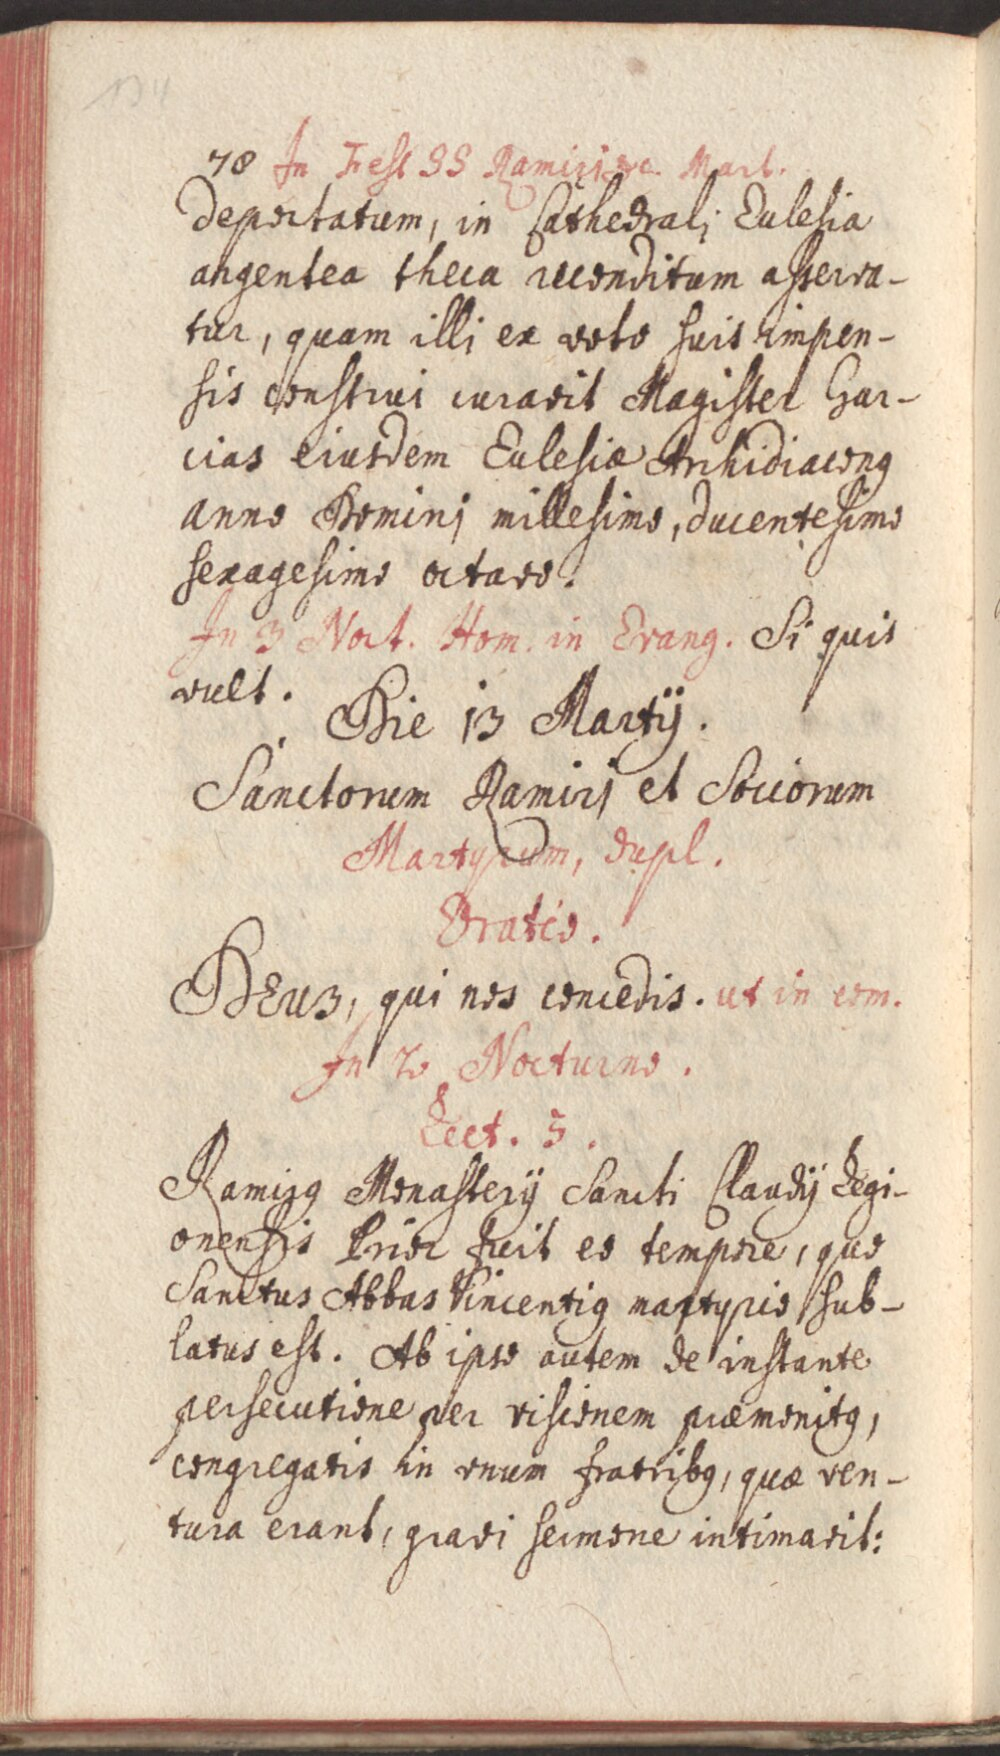 78 In Fest SS Ramirj &c. Mart.
deportatum, in Cathedrali Eclesia
argentea theca reconditum asserva-
tur, quam illi ex voto suis impen-
sis construi curavit Magister Gar-
cias eiusdem Eclesiæ Archidiaconꝰ
anno Dominj millesimo, ducentesimo
sexagesimo octavo.
In 3 Noct. Hom. in Evang. Si quis
vult.
Die 13 Martij.
Sanctorum Ramirj et Sociorum
Martyrum, dupl.
Oratio.
DEus, qui nos concedis. ut in com.
In 2o Nocturno.
Lect. 5.
Ramirꝰ Monasterij Sancti Claudij Legi-
onensis Prior fuit eo tempore, quo
Sanctus Abbas Vincentiꝰ martyrio sub-
latus est. Ab ipso autem de instante
persecutione per visionem præmonitꝰ,
congregatis in unum fratribꝰ, quæ ven-
tura erant, gravi sermone intimavit: